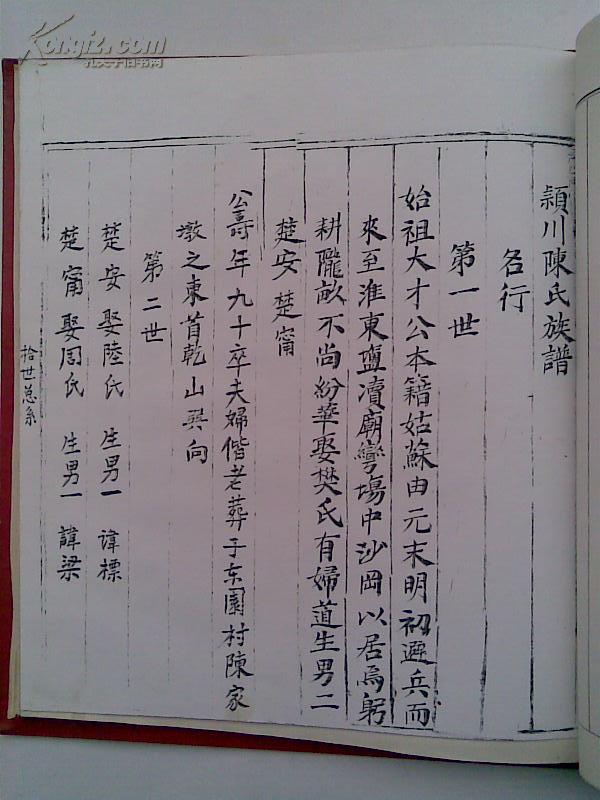 頴川陳氏族譜
名行
第一世
始祖大才公本籍姑蘇由元末明初避兵而
來至淮東鹽瀆廟灣場中沙岡以居焉躬
耕隴畝不尚紛華娶樊氏有婦道生男二
楚安 楚甯
公壽年九十卒夫婦偕老葬于东園村陳家
墩之東首乾山巽向
第二世
楚安 娶陸氏 生男一 諱標
楚甯 娶周氏 生男一 諱梁
拾世总系
Kongfz.com
孔夫子旧书网